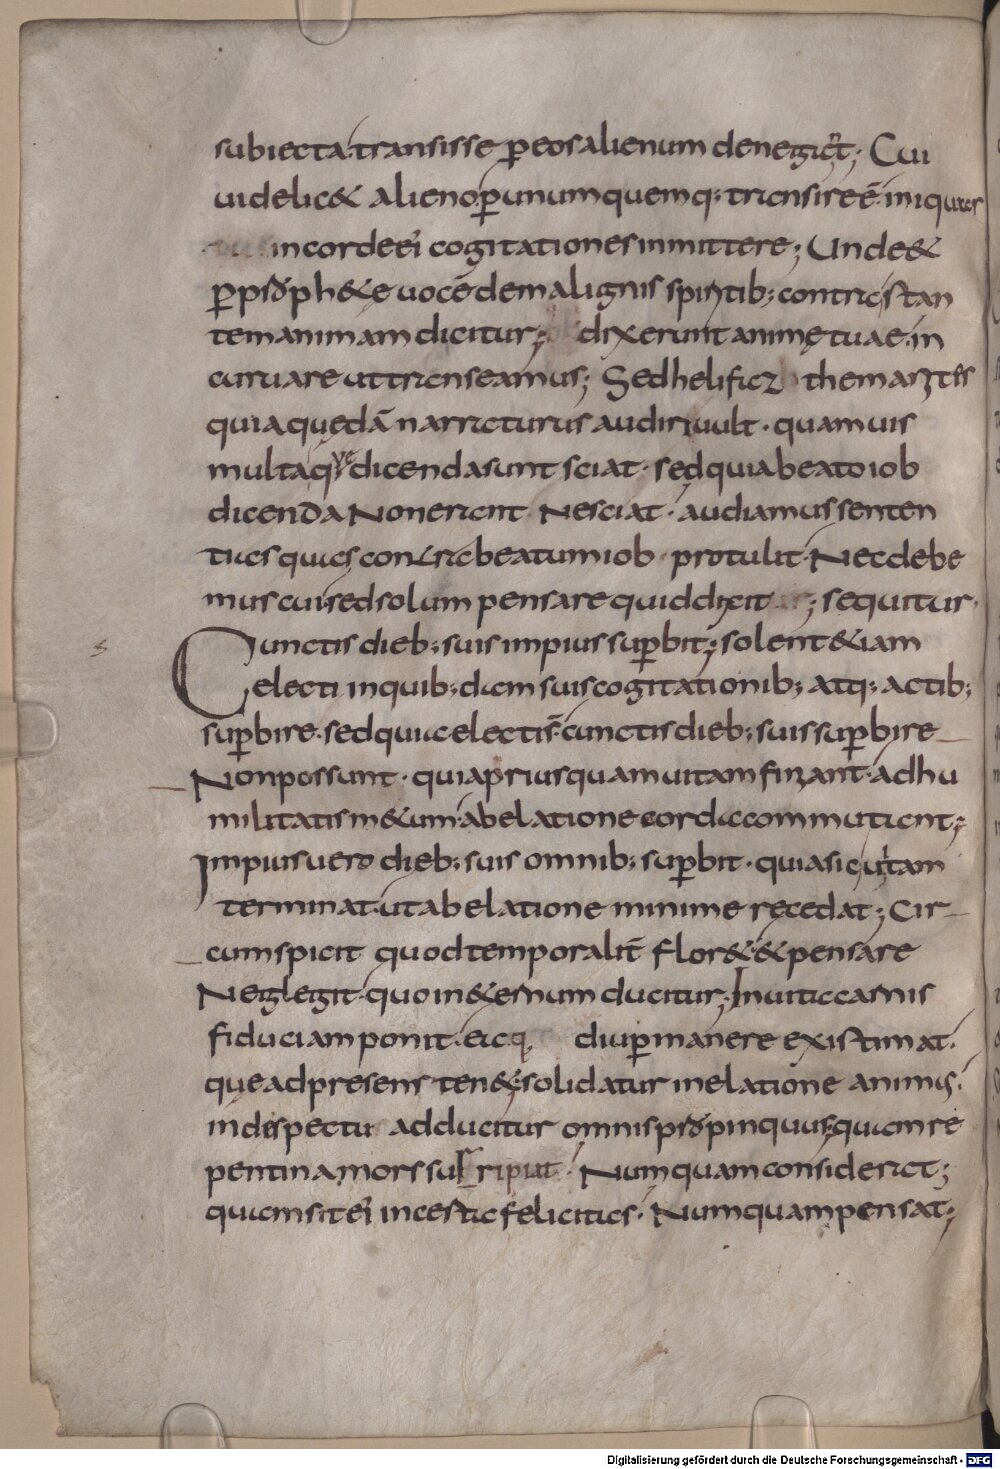 subiecta. transisse p̄ eos alienum denegat̄; Cui
uidelic& alieno p̄ unumquemq; transire ē. iniquas
in corde ei cogitationes inmittere; Unde &
p̄ p̄ph&ę uocē de malignis spiritib; contristan
tem animam dicitur; dixerunt animę tuae. in
curuare ut transeamus; Sed helifaz themanites
quia quędā narraturus audiri uult. quamuis
multa quę dicenda sunt sciat. sed quia beato iob
dicenda Non erant Nesciat. audiamus senten
tias quas contra beatum iob. protulit. Nec debe
mus cui. sed solum pensare quid dixit; sequitur.
Cunctis dieb; suis impius sup̄bit; solent &iam
electi in quib;dam suis cogitationib; atq; actib;
sup̄bire. sed quia electi s̄ cunctis dieb; suis sup̄bire
Non possunt. quia priusquam uitam finiant. ad hu
militatis m&um. ab elatione corda commutant;
Impius uero dieb; suis omnib; sup̄bit. quia sic uitam
terminat. ut ab elatione minime recedat; Cir
cumspicit quod temporalit̄ flor& & pensare
Neglegit. quo in &ernum ducitur; In uita carnis
fiduciam ponit. eaq; diu p̄manere existimat.
que ad presens ten&; solidatur in elatione animus.
in despectu adducitur omnis p̄pinquus; quam re
pentina mors su ripiat. Numquam considerat;
quam sit ei incesta felicitas. Numquam pensat;
s
Digitalisierung gefördert durch die Deutsche Forschungsgemeinschaft - DFG